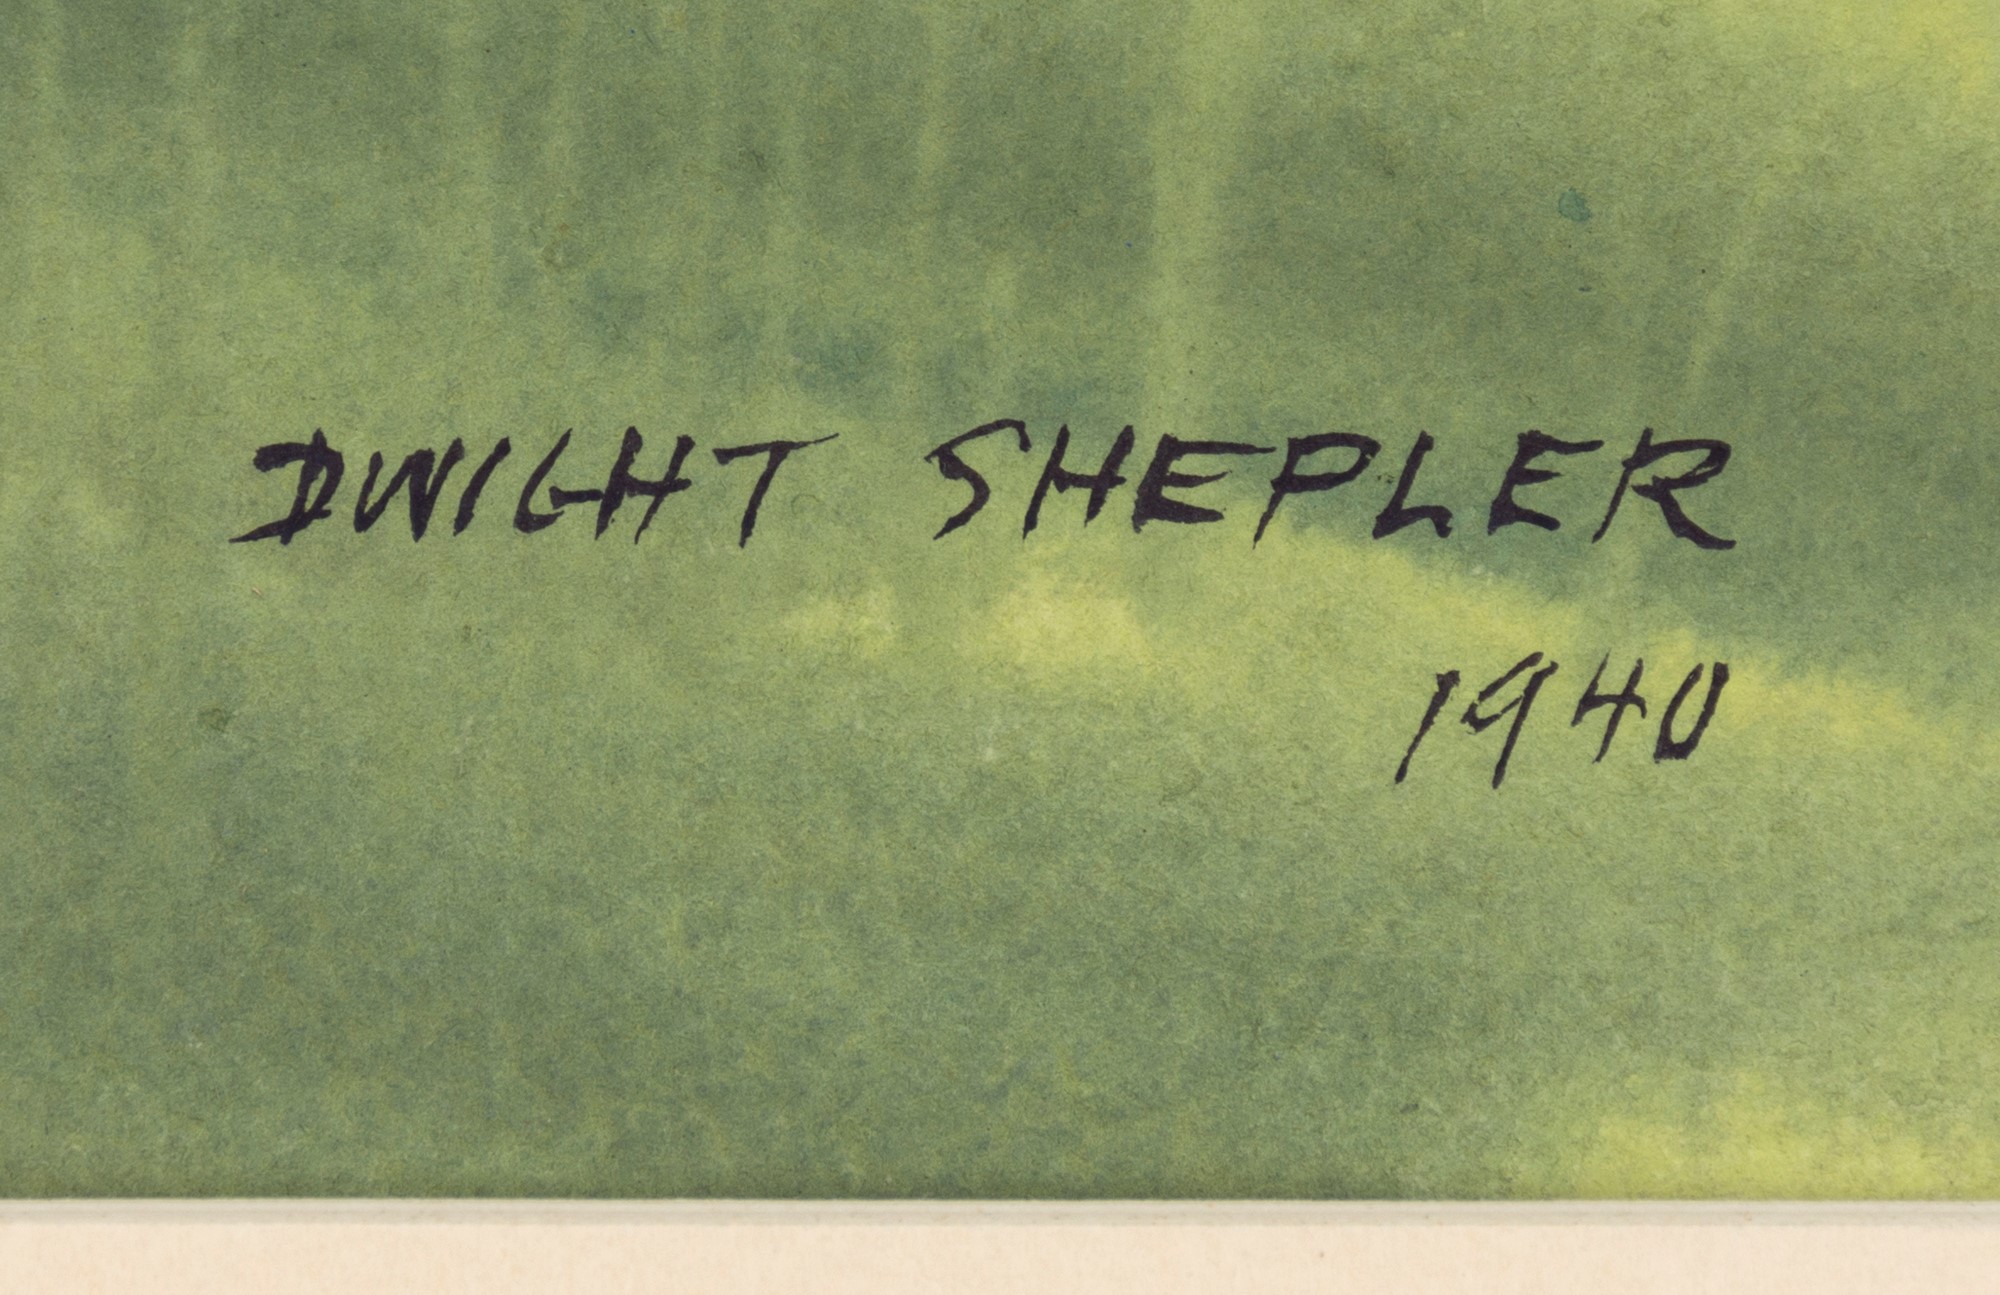 DWIGHT SHEPLER
1940